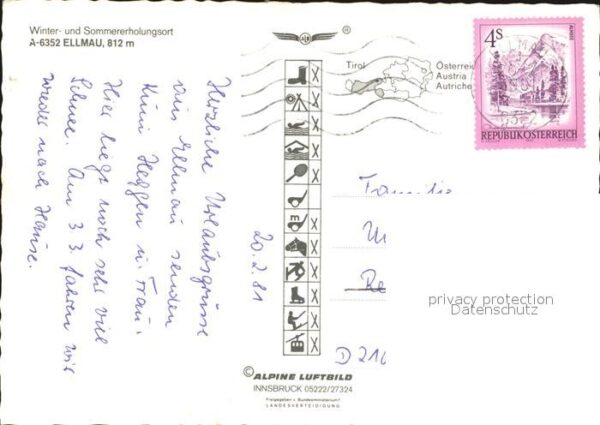 Winter- und Sommererholungsort
A-6352 ELLMAU, 812 m
Herzliche Urlaubsgrüsse
von Ellmau senden
Heggen u. Frau.
Hier liegt noch sehr viel
Schnee. Am 3.3. fahren wir
wieder nach Hause.
®
Tirol
Österrei
Austria
Autriche
4s
REPUBLIK ÖSTERREICH
20.2.81
Familie
M
Re
D 216
privacy protection
Datenschutz
m
© ALPINE LUFTBILD
INNSBRUCK 05222/27324
Freigegeben v. Bundesministerium f.
LANDESVERTEIDIGUNG